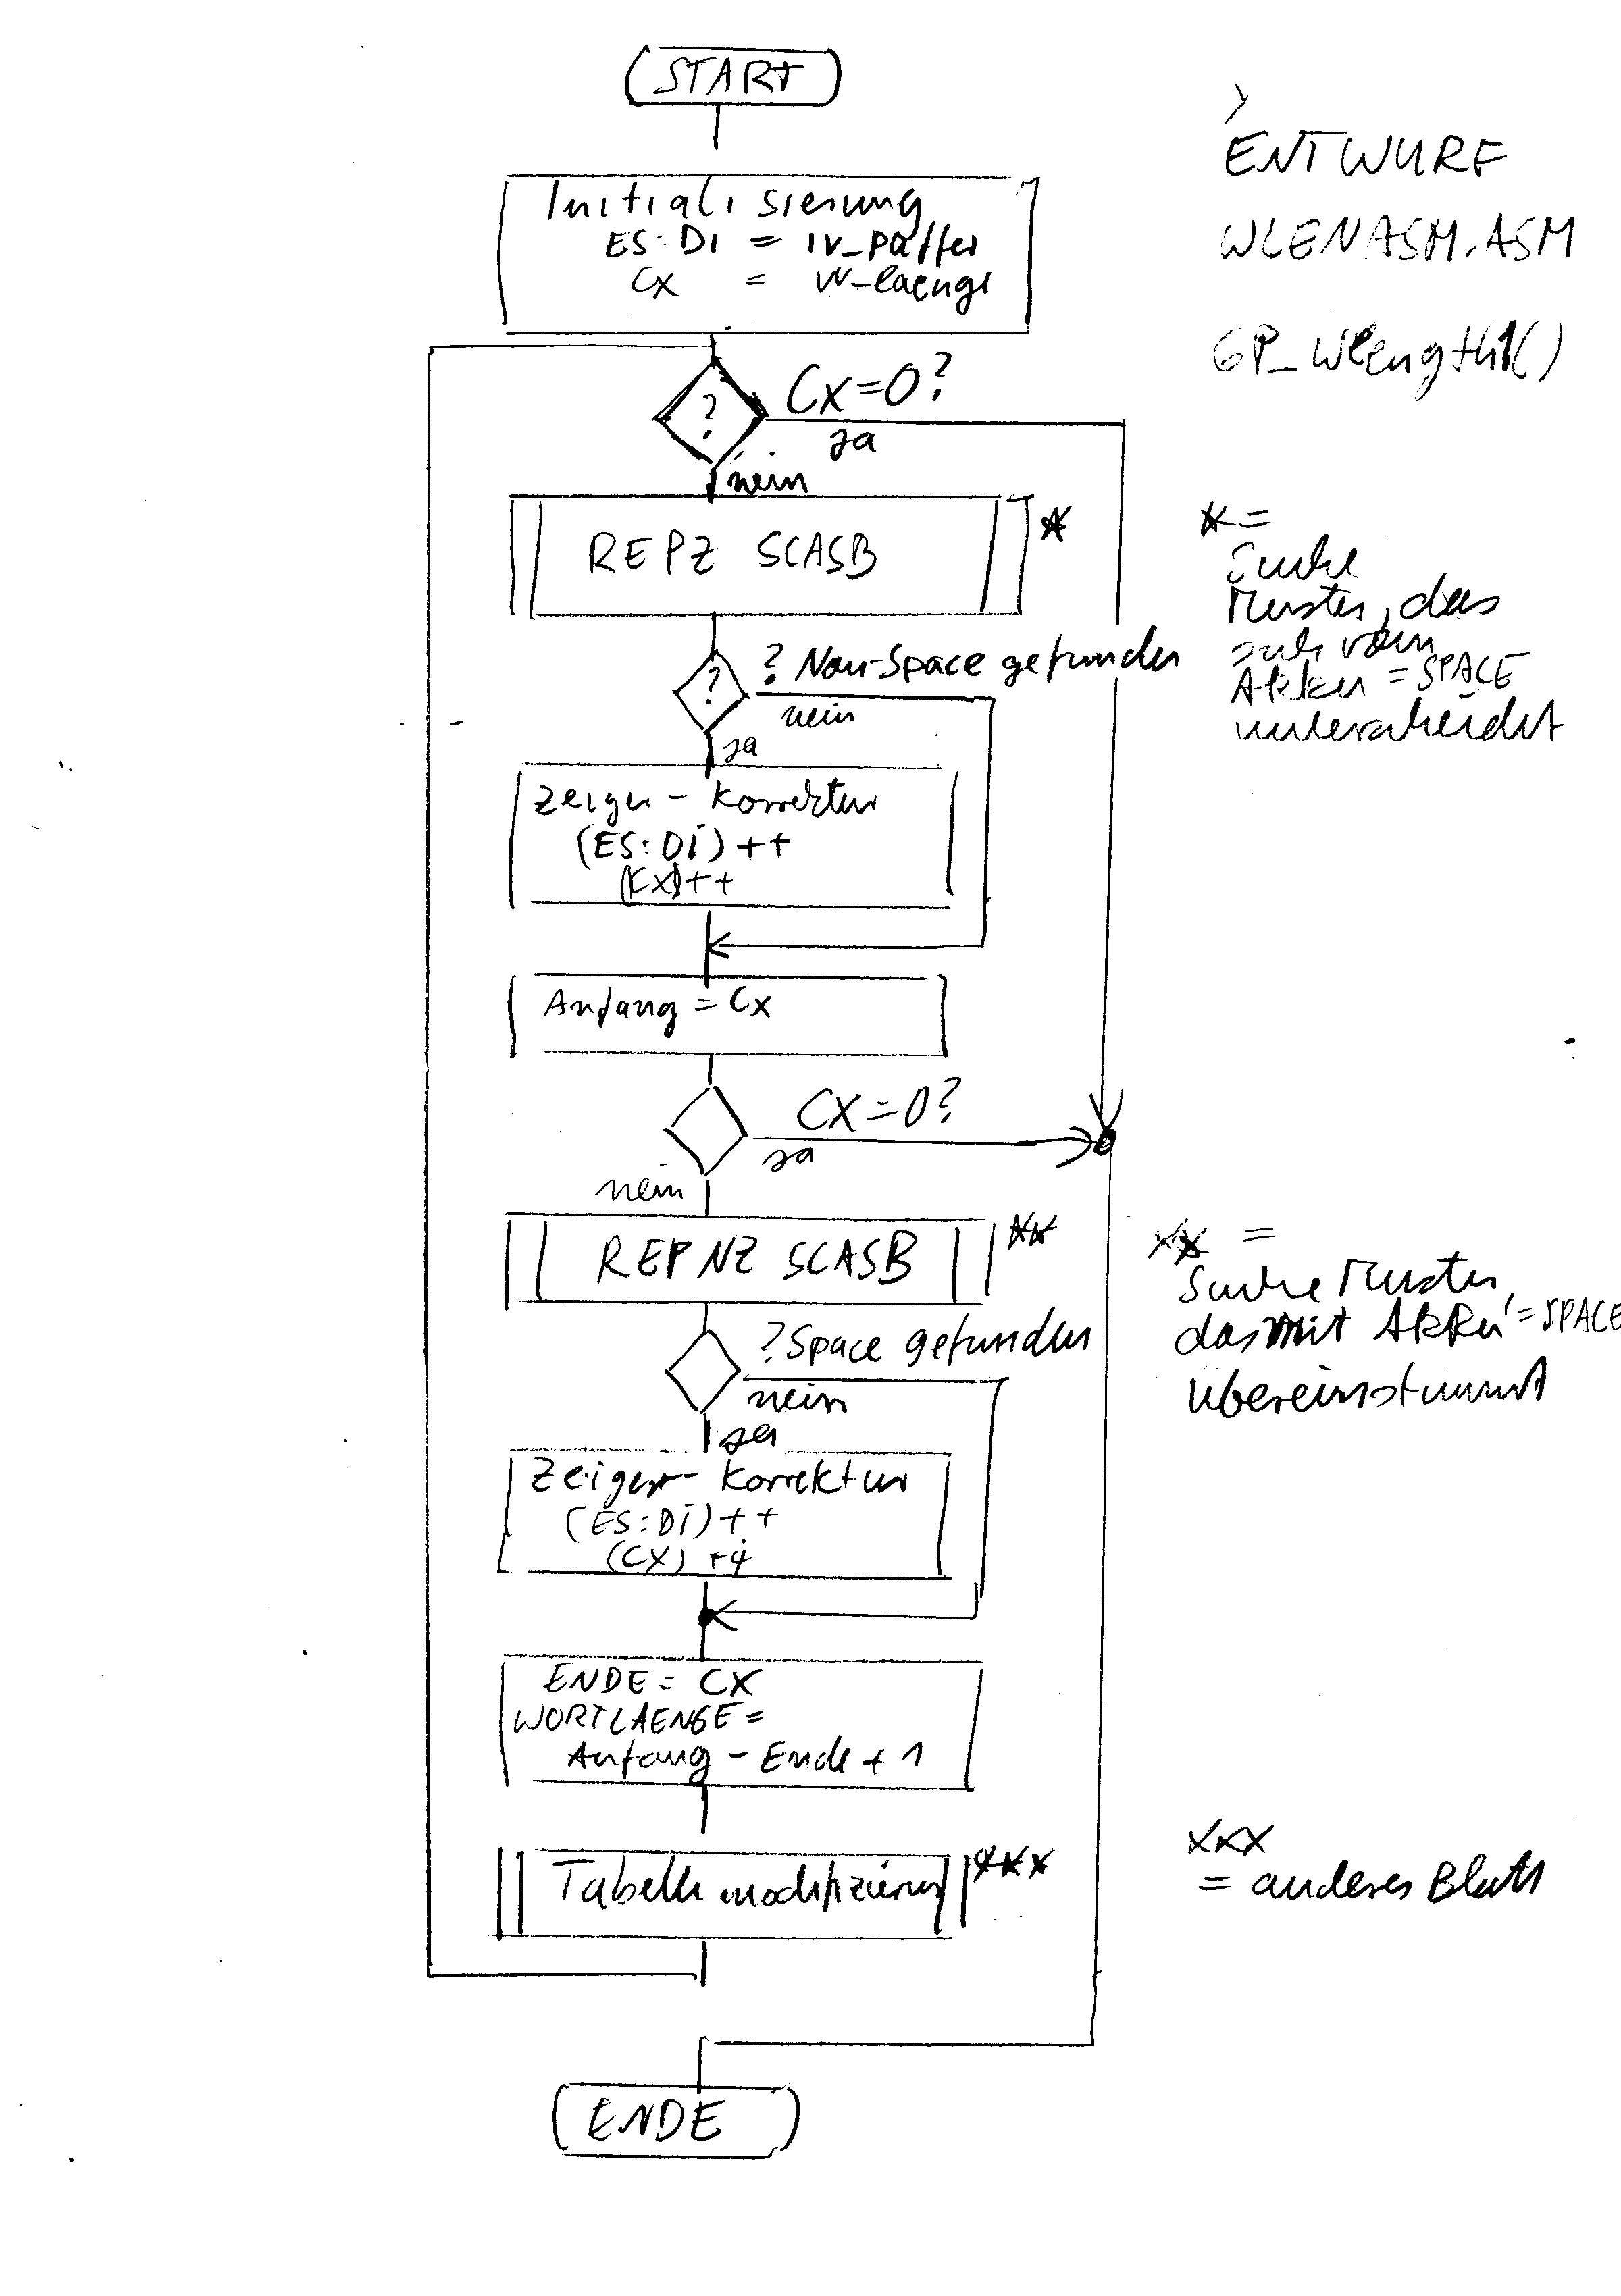 START
ENTWURF
WLENASM.ASM
GP_Wlength1()
Initialisierung
ES:DI = iv_paffer
CX = W-laenge
? CX=0?
ja
nein
REPZ SCASB *
* =
Suche
Muster, das
sich vom
Akku = SPACE
unterscheidet
? ? Non-Space gefunden
nein
ja
Zeiger-Korrektur
(ES:DI)++
(CX)++
Anfang = CX
CX=0?
ja
nein
REPNZ SCASB **
** =
Suche Muster,
das mit Akku = SPACE
übereinstimmt
? Space gefunden
nein
ja
Zeiger-Korrektur
(ES:DI)++
(CX)++
ENDE = CX
WORTLAENGE =
Anfang - Ende + 1
Tabelle modifizieren ***
***
= anderes Blatt
ENDE